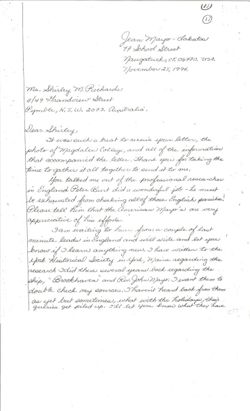 Jean Mayo-Lakatos
79 School Street
Naugatuck, CT. 06770, USA
November 25, 1996
Ms. Shirley M. Richards
Street
Pymble, N.S.W. 2073 Australia.
Dear Shirley,
It was such a treat to receive your letter, the
photo of Magdalen College, and all of the information
that accompanied the letter. Thank you for taking the
time to gather it all together & to send it to me.
You talked me out of the professional researcher
in England. Peter Bent did a wonderful job - he must
be exhausted from checking all of those English parishes!
Please tell him that the American Mayo's are very
appreciative of his efforts.
I am waiting to hear from a couple of last
minute leads in England and will write and let you
know if I learn anything new. I have written to the
York Historical Society in York, Maine regarding the
research I did there several years back regarding the
ship, "Brookhaven" and Rev. John Mayo. I want them to
double check my sources. I haven't heard back from them
as yet but sometimes, what with the holidays, their
queries get piled up. I'll let you know what they have